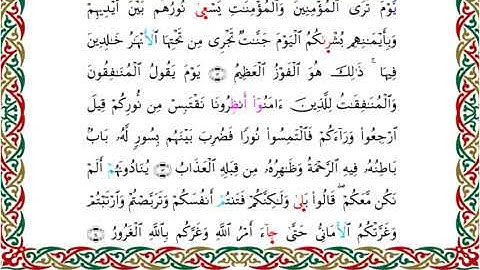 يَوْمَ تَرَى ٱلْمُؤْمِنِينَ وَٱلْمُؤْمِنَٰتِ يَسْعَىٰ نُورُهُم بَيْنَ أَيْدِيهِمْ
وَبِأَيْمَٰنِهِم بُشْرَىٰكُمُ ٱلْيَوْمَ جَنَّٰتٌ تَجْرِى مِن تَحْتِهَا ٱلْأَنْهَٰرُ خَٰلِدِينَ
فِيهَا ۚ ذَٰلِكَ هُوَ ٱلْفَوْزُ ٱلْعَظِيمُ يَوْمَ يَقُولُ ٱلْمُنَٰفِقُونَ
وَٱلْمُنَٰفِقَٰتُ لِلَّذِينَ ءَامَنُوٓا۟ أَنظِرُونَا نَقْتَبِسْ مِن نُّورِكُمْ قِيلَ
ٱرْجِعُوا۟ وَرَآءَكُمْ فَٱلْتَمِسُوا۟ نُورًا فَضُرِبَ بَيْنَهُم بِسُورٍ لَّهُۥ بَابٌۢ
بَاطِنُهُۥ فِيهِ ٱلرَّحْمَةُ وَظَٰهِرُهُۥ مِن قِبَلِهِ ٱلْعَذَابُ يُنَادُونَهُمْ أَلَمْ
نَكُن مَّعَكُمْ ۖ قَالُوا۟ بَلَىٰ وَلَٰكِنَّكُمْ فَتَنتُمْ أَنفُسَكُمْ وَتَرَبَّصْتُمْ وَٱرْتَبْتُمْ
وَغَرَّتْكُمُ ٱلْأَمَانِىُّ حَتَّىٰ جَآءَ أَمْرُ ٱللَّهِ وَغَرَّكُم بِٱللَّهِ ٱلْغَرُورُ